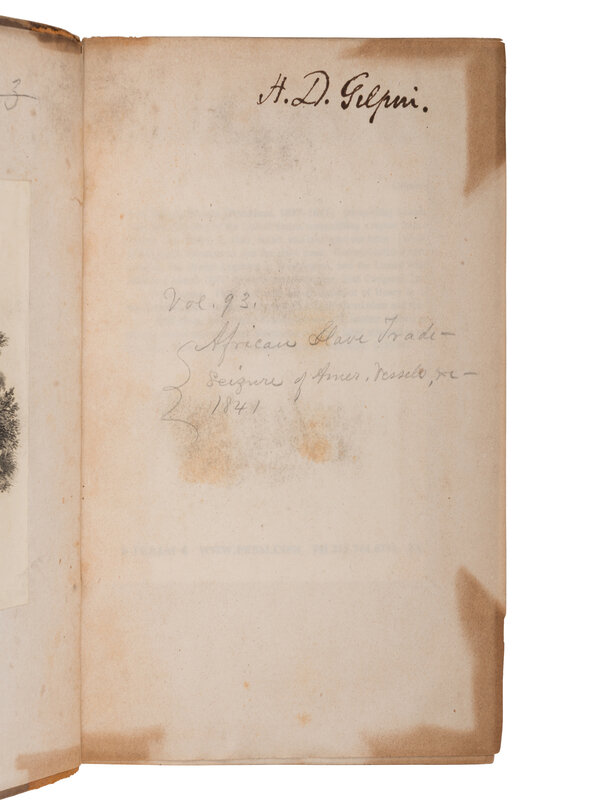 3
H. D. Gilpin.
Vol. 93.
African Slave Trade—
Seizure of Amer. Vessels, &c—
1841